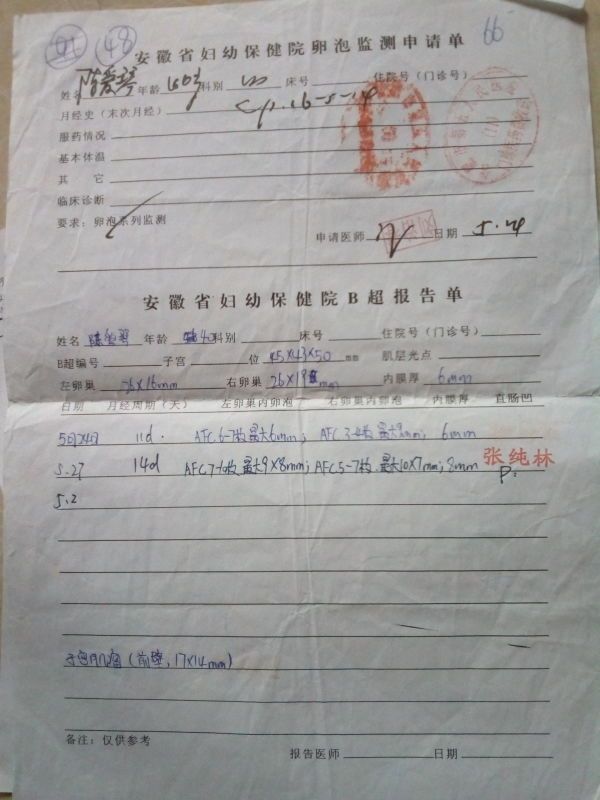 48
66
安徽省妇幼保健院卵泡监测申请单
姓名 年龄 科别 床号 住院号（门诊号）
月经史（末次月经）
服药情况
基本体温
其 它
临床诊断
要求：卵泡系列监测
申请医师 日期 5.24
安徽省妇幼保健院B超报告单
姓名 年龄 40 科别 床号 住院号（门诊号）
B超编号 子宫 位 45×43×50 mm 肌层光点
左卵巢 26×16mm 右卵巢 26×19 mm 内膜厚 6mm
日期 月经周期（天） 左卵巢内卵泡 右卵巢内卵泡 内膜厚 直肠凹
5月24日 11d. AFC 6-7枚 最大6mm; AFC 3-4枚 最大9mm; 6mm
5.27 14d AFC 7-10枚 最大9×8mm; AFC 5-7枚 最大10×7mm; 8mm 张纯林
5.2
子宫肌瘤（前壁，17×14mm）
备注：仅供参考
报告医师 日期